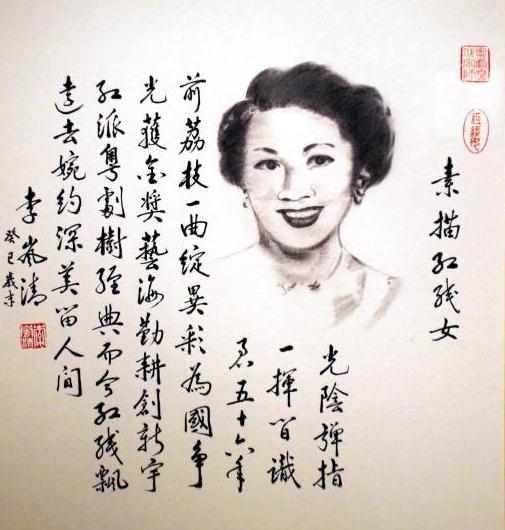 素描红线女
光陰彈指
一揮首識
五十六年
前荔枝一曲綻異彩為國争
光獲金獎藝海勤耕創新宇
红派粵劇樹經典而今红线飄
遠去婉約深美留人间
李岚清
癸巳歲末